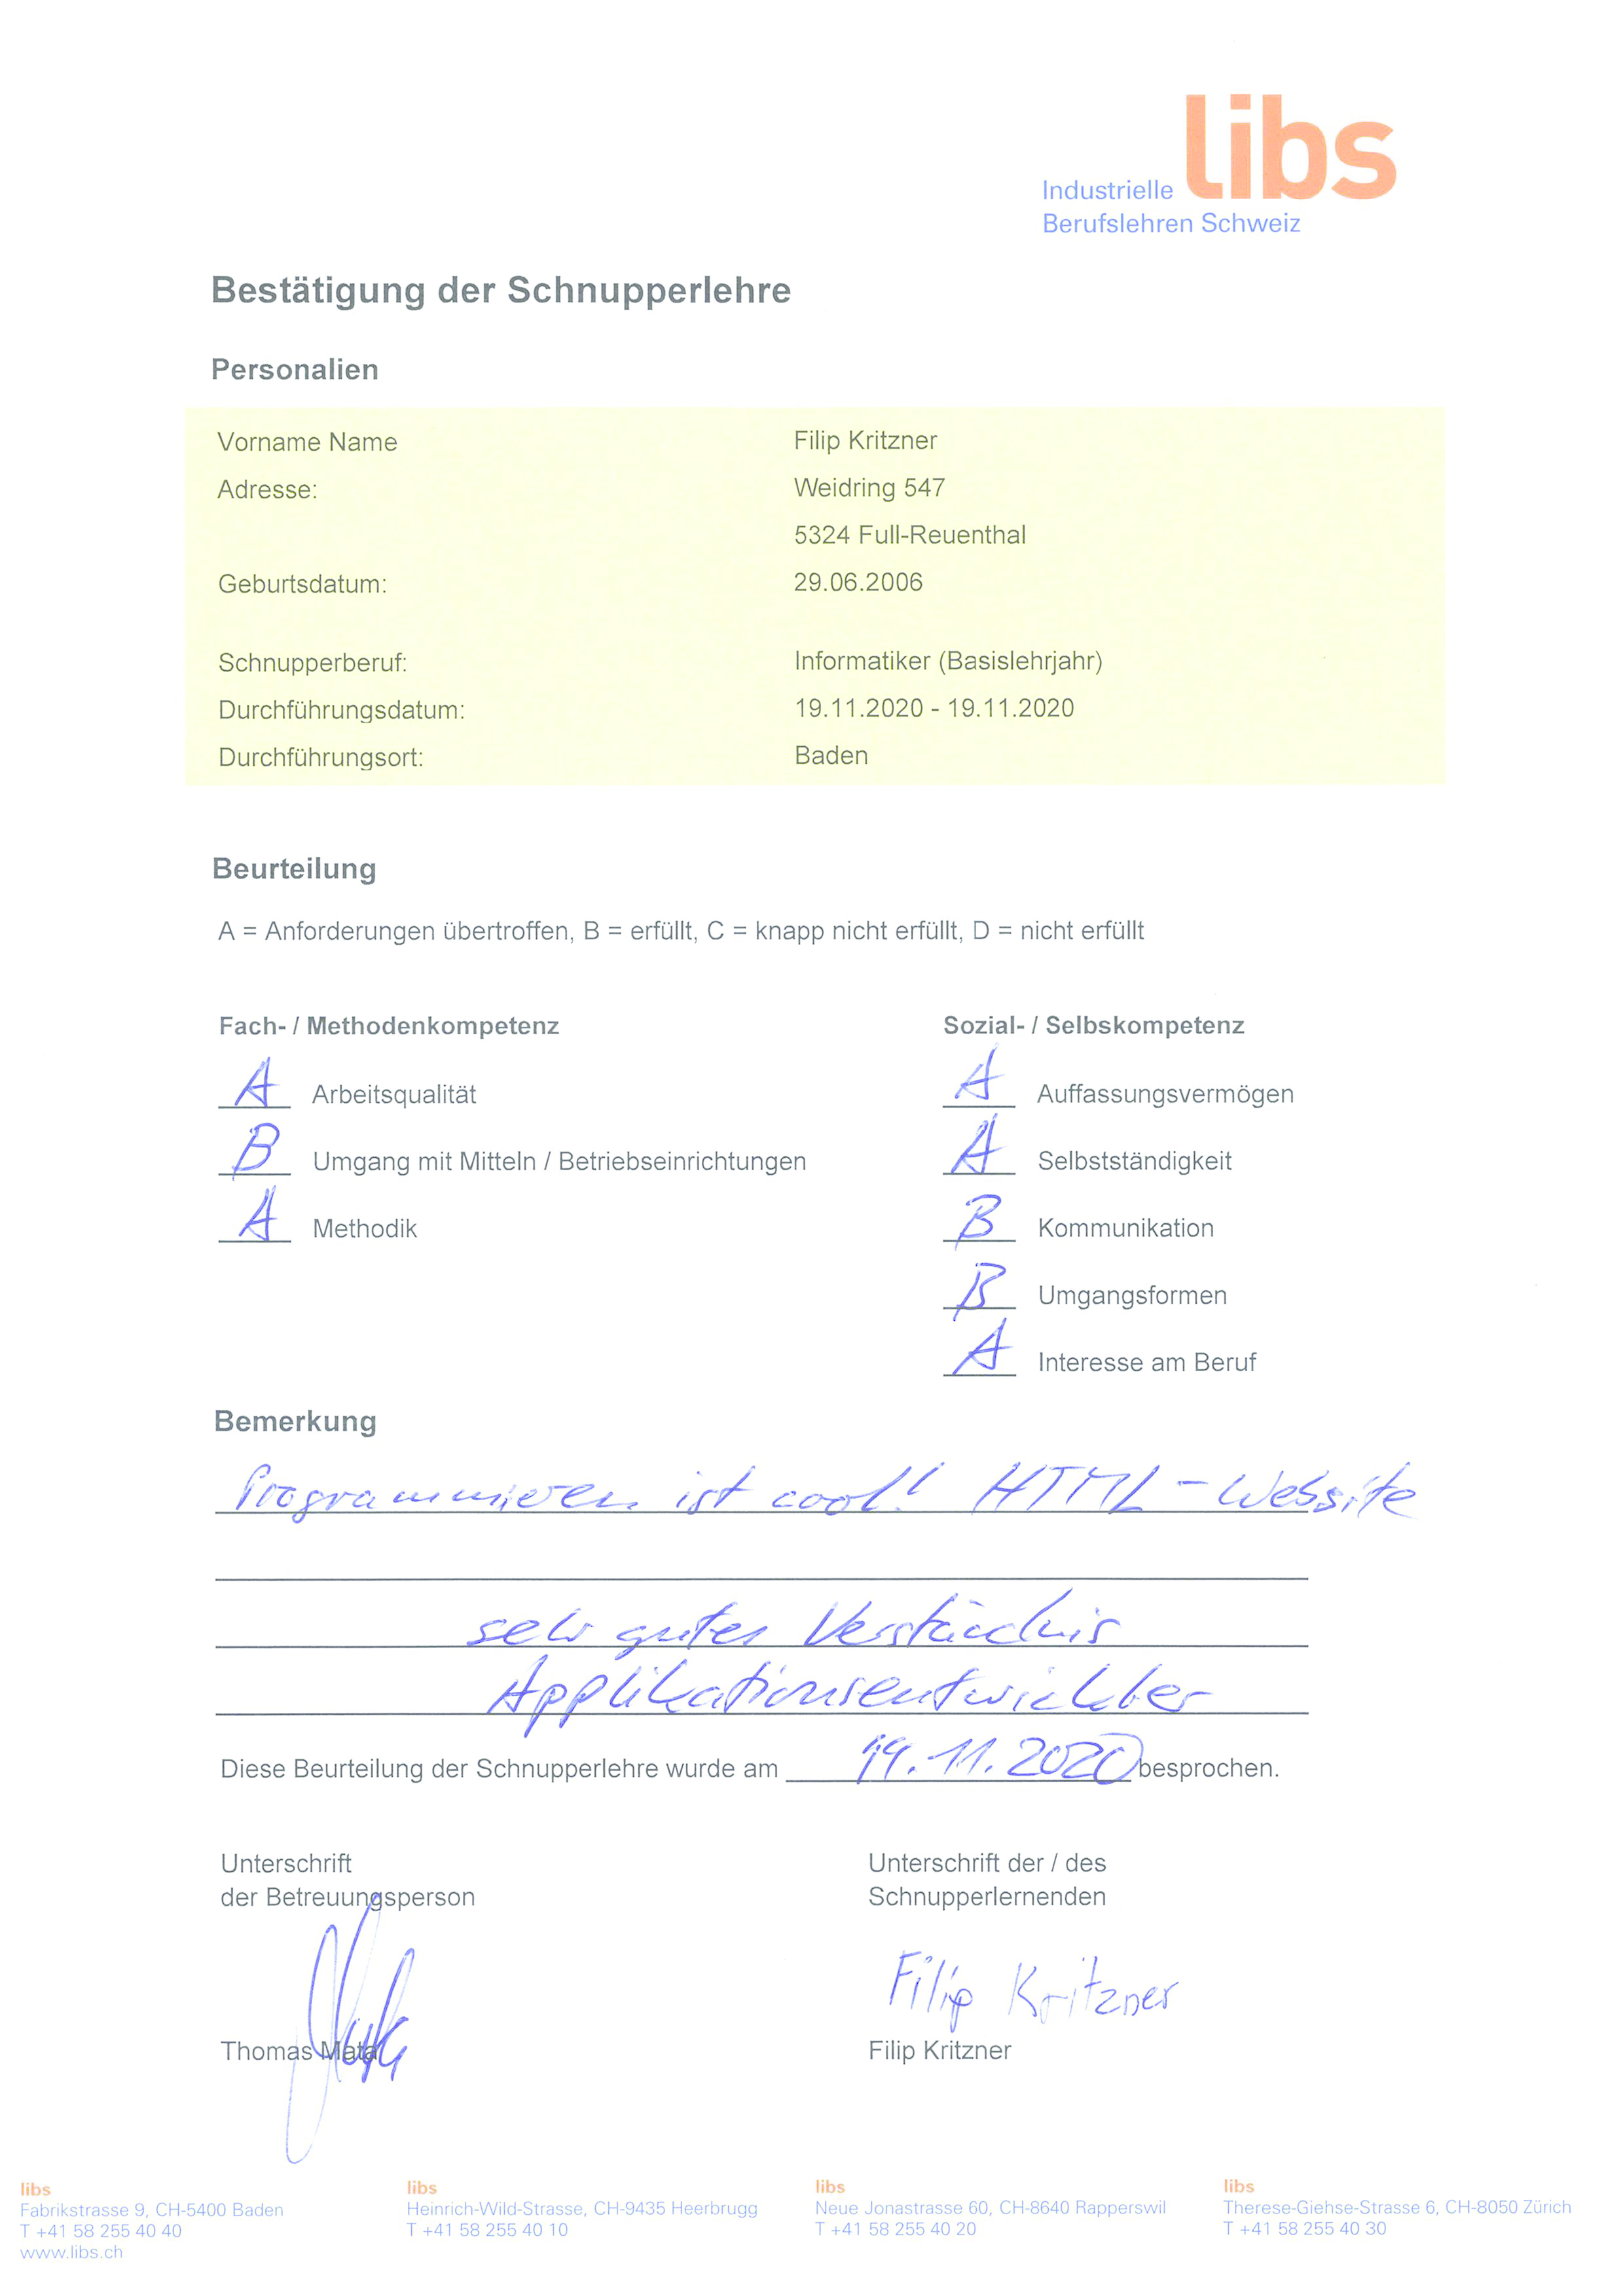 libs
Industrielle
Berufslehren Schweiz
Bestätigung der Schnupperlehre
Personalien
Vorname Name Filip Kritzner
Adresse: Weidring 547
5324 Full-Reuenthal
Geburtsdatum: 29.06.2006
Schnupperberuf: Informatiker (Basislehrjahr)
Durchführungsdatum: 19.11.2020 - 19.11.2020
Durchführungsort: Baden
Beurteilung
A = Anforderungen übertroffen, B = erfüllt, C = knapp nicht erfüllt, D = nicht erfüllt
Fach- / Methodenkompetenz
A Arbeitsqualität
B Umgang mit Mitteln / Betriebseinrichtungen
A Methodik
Sozial- / Selbskompetenz
A Auffassungsvermögen
A Selbstständigkeit
B Kommunikation
B Umgangsformen
A Interesse am Beruf
Bemerkung
Programmieren ist cool! HTML-Website
sehr gutes Verständnis
Applikationsentwickler
Diese Beurteilung der Schnupperlehre wurde am 19.11.2020 besprochen.
Unterschrift
der Betreuungsperson
Thomas Mata
Unterschrift der / des
Schnupperlernenden
Filip Kritzner
Filip Kritzner
libs
Fabrikstrasse 9, CH-5400 Baden
T +41 58 255 40 40
www.libs.ch
libs
Heinrich-Wild-Strasse, CH-9435 Heerbrugg
T +41 58 255 40 10
libs
Neue Jonastrasse 60, CH-8640 Rapperswil
T +41 58 255 40 20
libs
Therese-Giehse-Strasse 6, CH-8050 Zürich
T +41 58 255 40 30